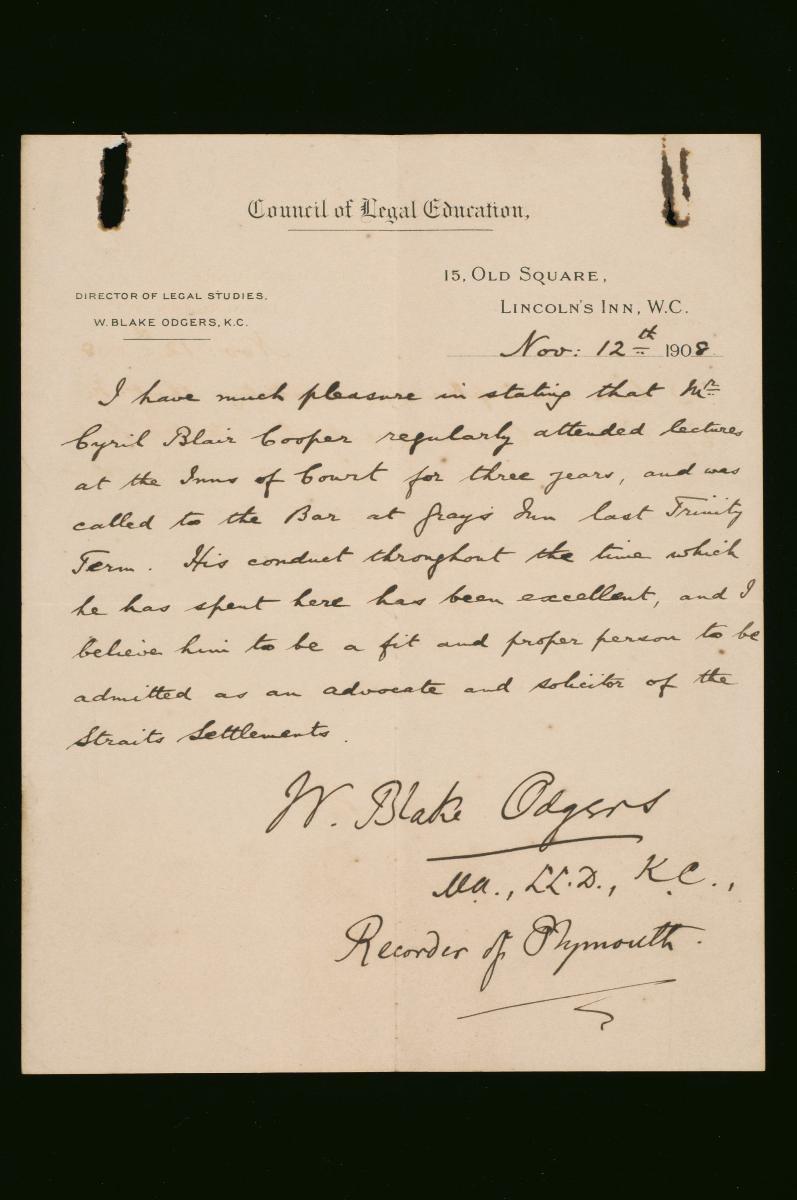 Council of Legal Education,
15, OLD SQUARE,
DIRECTOR OF LEGAL STUDIES.
LINCOLN'S INN, W.C.
W. BLAKE ODGERS, K.C.
Nov: 12th 1908
I have much pleasure in stating that Mr
Cyril Blair Cooper regularly attended lectures
at the Inns of Court for three years, and was
called to the Bar at Gray's Inn last Trinity
Term. His conduct throughout the time which
he has spent here has been excellent, and I
believe him to be a fit and proper person to be
admitted as an advocate and solicitor of the
Straits Settlements.
W. Blake Odgers
M.A., LL.D., K.C.,
Recorder of Plymouth.